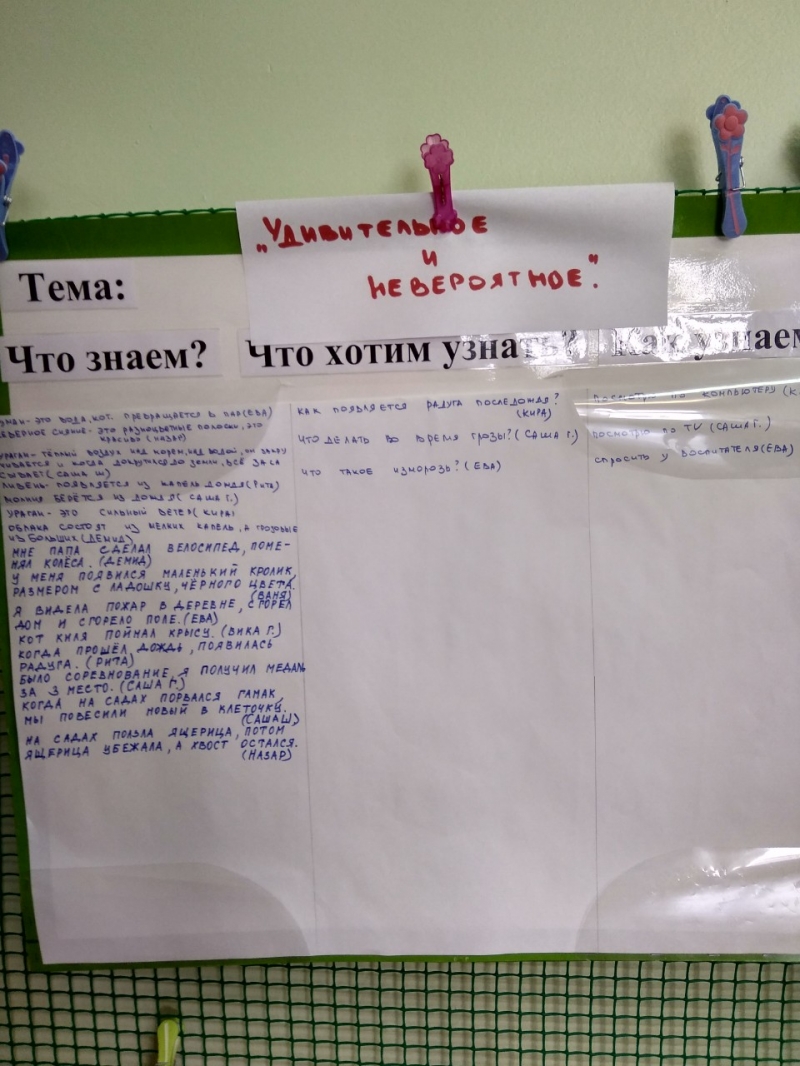 „Удивительное
и
невероятное".
Тема:
Что знаем?
Что хотим узнать?
Как узнаем
туман - это вода, кот. превращается в пар(Ева)
северное сияние - это разноцветные полоски, это
красиво (Назар)
ураган - тёплый воздух над морем, над водой, он
и когда докружился до земли, всё
(Саша Ш)
ливень - появляется из капель дождя(Рита)
молния берётся из дождя( Саша Г.)
ураган - это сильный ветер( Кира)
облака состоят из мелких капель, а грозовые
из больших(Демид)
мне папа сделал велосипед, поме-
нял колёса. (Демид)
у меня появился маленький кролик,
размером с ладошку, чёрного цвета.
(Ваня)
я видела пожар в деревне, сгорел
дом и сгорело поле.(Ева)
кот Киля поймал крысу. (Вика Г.)
когда прошёл дождь, появилась
радуга. (Рита)
было соревнование, я получил медаль
за 3 место. (Саша Г.)
когда на садах порвался гамак,
мы повесили новый в клеточку.
(Саша Ш)
на садах ползла ящерица, потом
ящерица убежала, а хвост остался.
(Назар)
как появляется радуга после дождя?
(Кира)
что делать во время грозы?( Саша Г.)
что такое изморозь? (Ева)
посмотрю по компьютеру (К
посмотрю по TV (Саша Г.)
спросить у воспитателя(Ева)